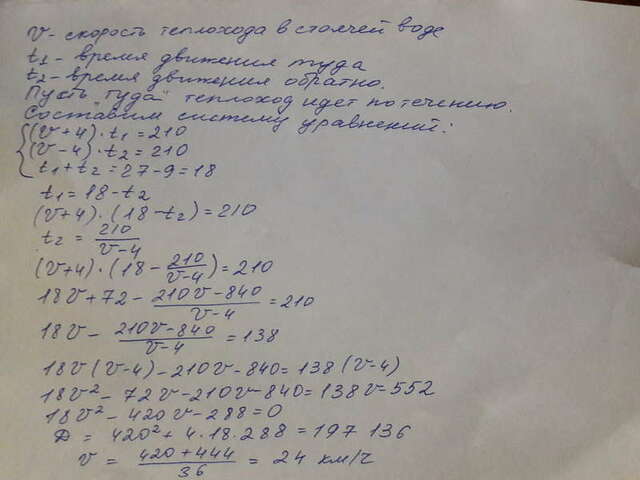 v - скорость теплохода в стоячей воде
t₁ - время движения туда
t₂ - время движения обратно.
Пусть "туда" теплоход идет по течению.
Составим систему уравнений:
(v+4)·t₁=210
(v-4)·t₂=210
t₁+t₂=27-9=18
t₁=18-t₂
(v+4)·(18-t₂)=210
t₂ = 210/(v-4)
(v+4)·(18 - 210/(v-4))=210
18v+72 - (210v-840)/(v-4) = 210
18v - (210v-840)/(v-4) = 138
18v(v-4)-210v-840=138(v-4)
18v²-72v-210v-840=138v-552
18v²-420v-288=0
D = 420²+4·18·288=197 136
v = (420+444)/36 = 24 км/ч